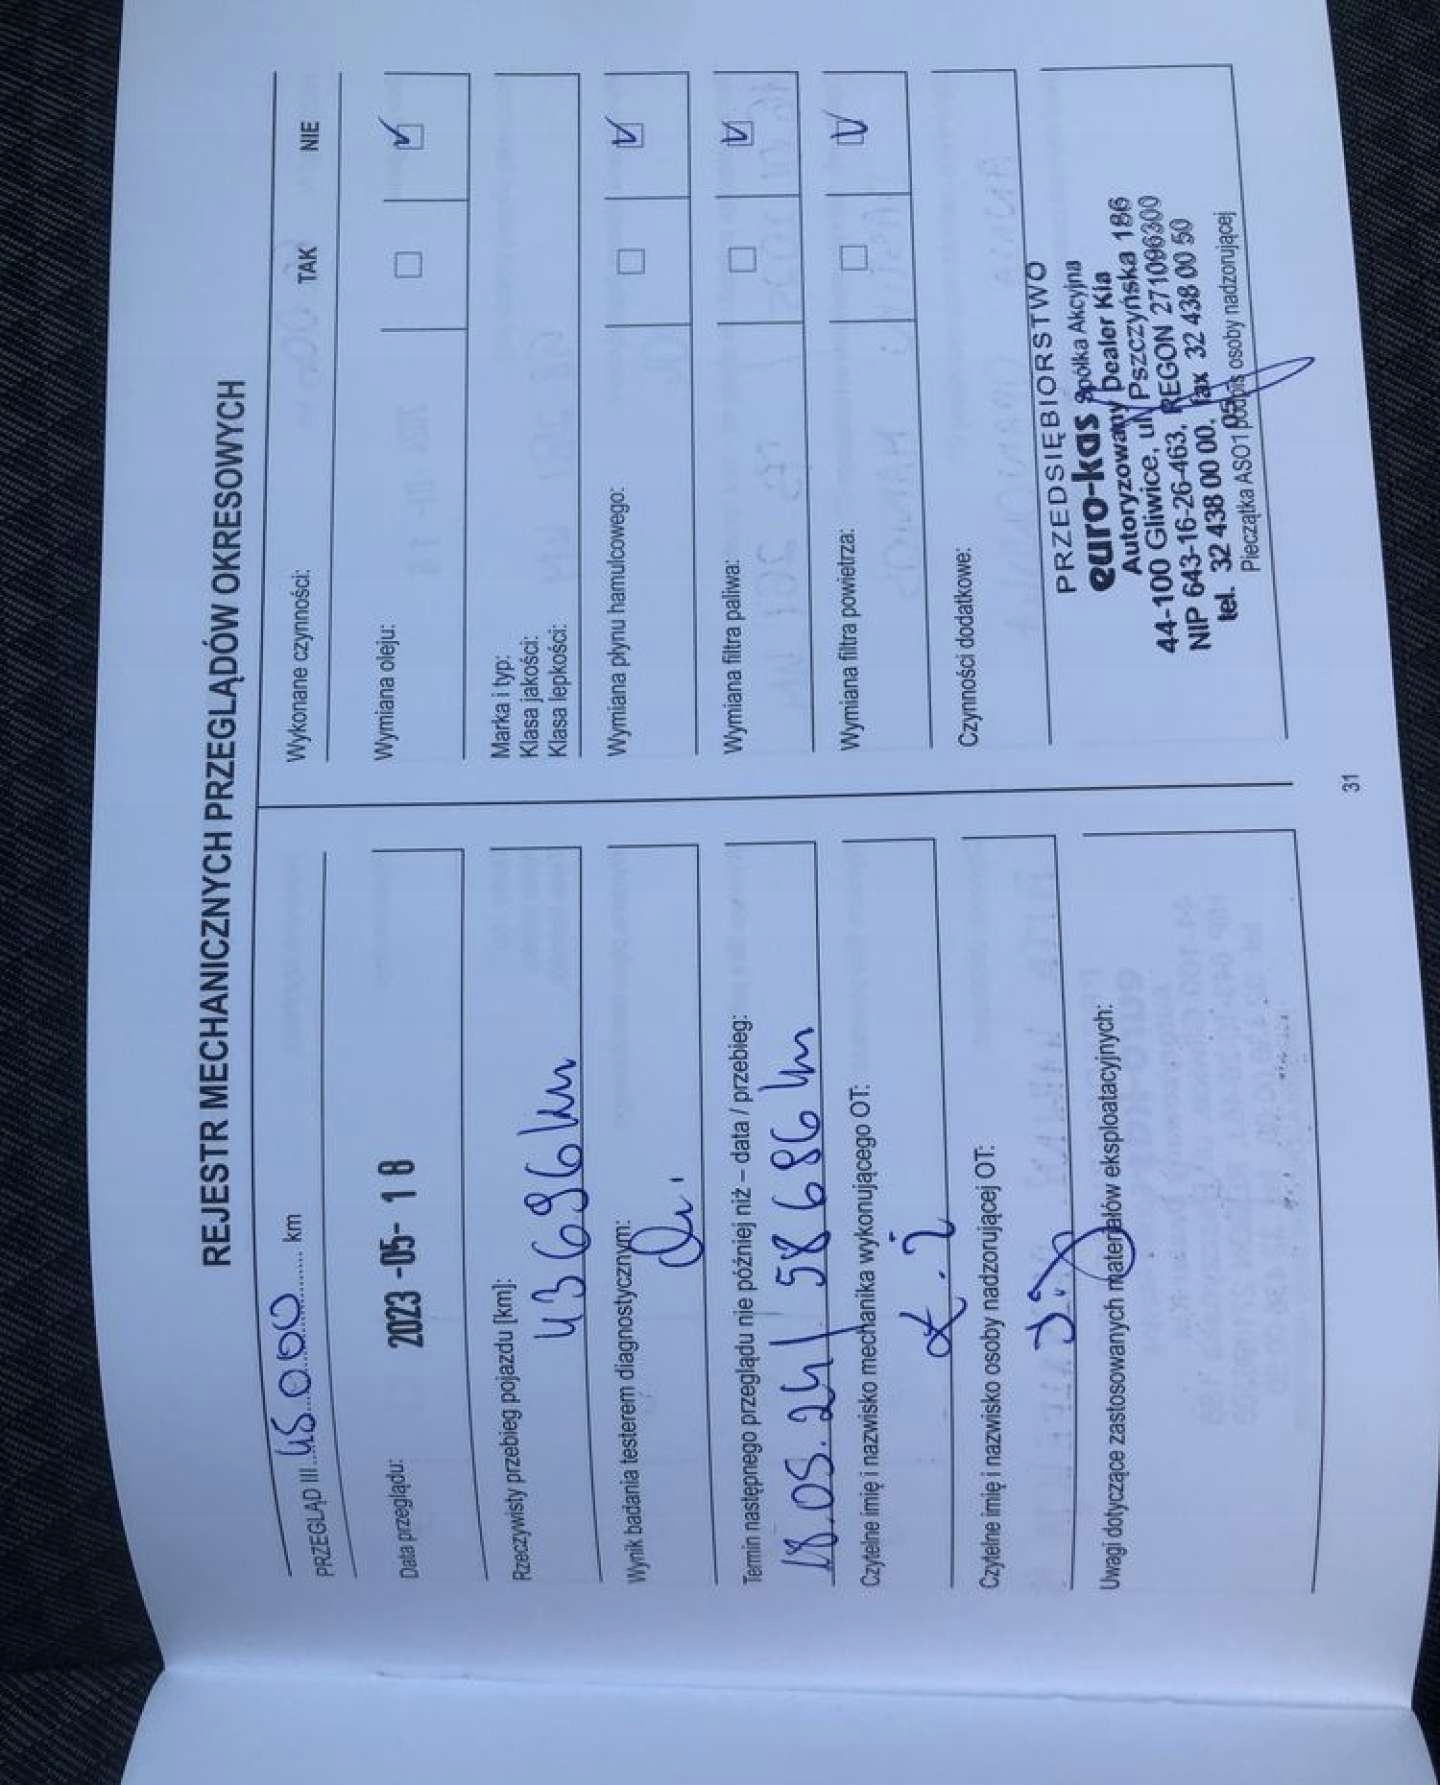 REJESTR MECHANICZNYCH PRZEGLĄDÓW OKRESOWYCH
PRZEGLĄD III 45.000 km
Data przeglądu: 2023 -05- 18
Rzeczywisty przebieg pojazdu [km]:
43696 km
Wynik badania testerem diagnostycznym:
Termin następnego przeglądu nie później niż – data / przebieg:
18.05.24/ 58686 km
Czytelne imię i nazwisko mechanika wykonującego OT:
Czytelne imię i nazwisko osoby nadzorującej OT:
Uwagi dotyczące zastosowanych materiałów eksploatacyjnych:
Wykonane czynności: TAK NIE
Wymiana oleju:
Marka i typ:
Klasa jakości:
Klasa lepkości:
Wymiana płynu hamulcowego:
Wymiana filtra paliwa:
Wymiana filtra powietrza:
Czynności dodatkowe:
PRZEDSIĘBIORSTWO
euro-kas Spółka Akcyjna
Autoryzowany Dealer Kia
44-100 Gliwice, ul. Pszczyńska 186
NIP 643-16-26-463, REGON 271096300
tel. 32 438 00 00, fax 32 438 00 50
Pieczątka ASO1 podpis osoby nadzorującej
31